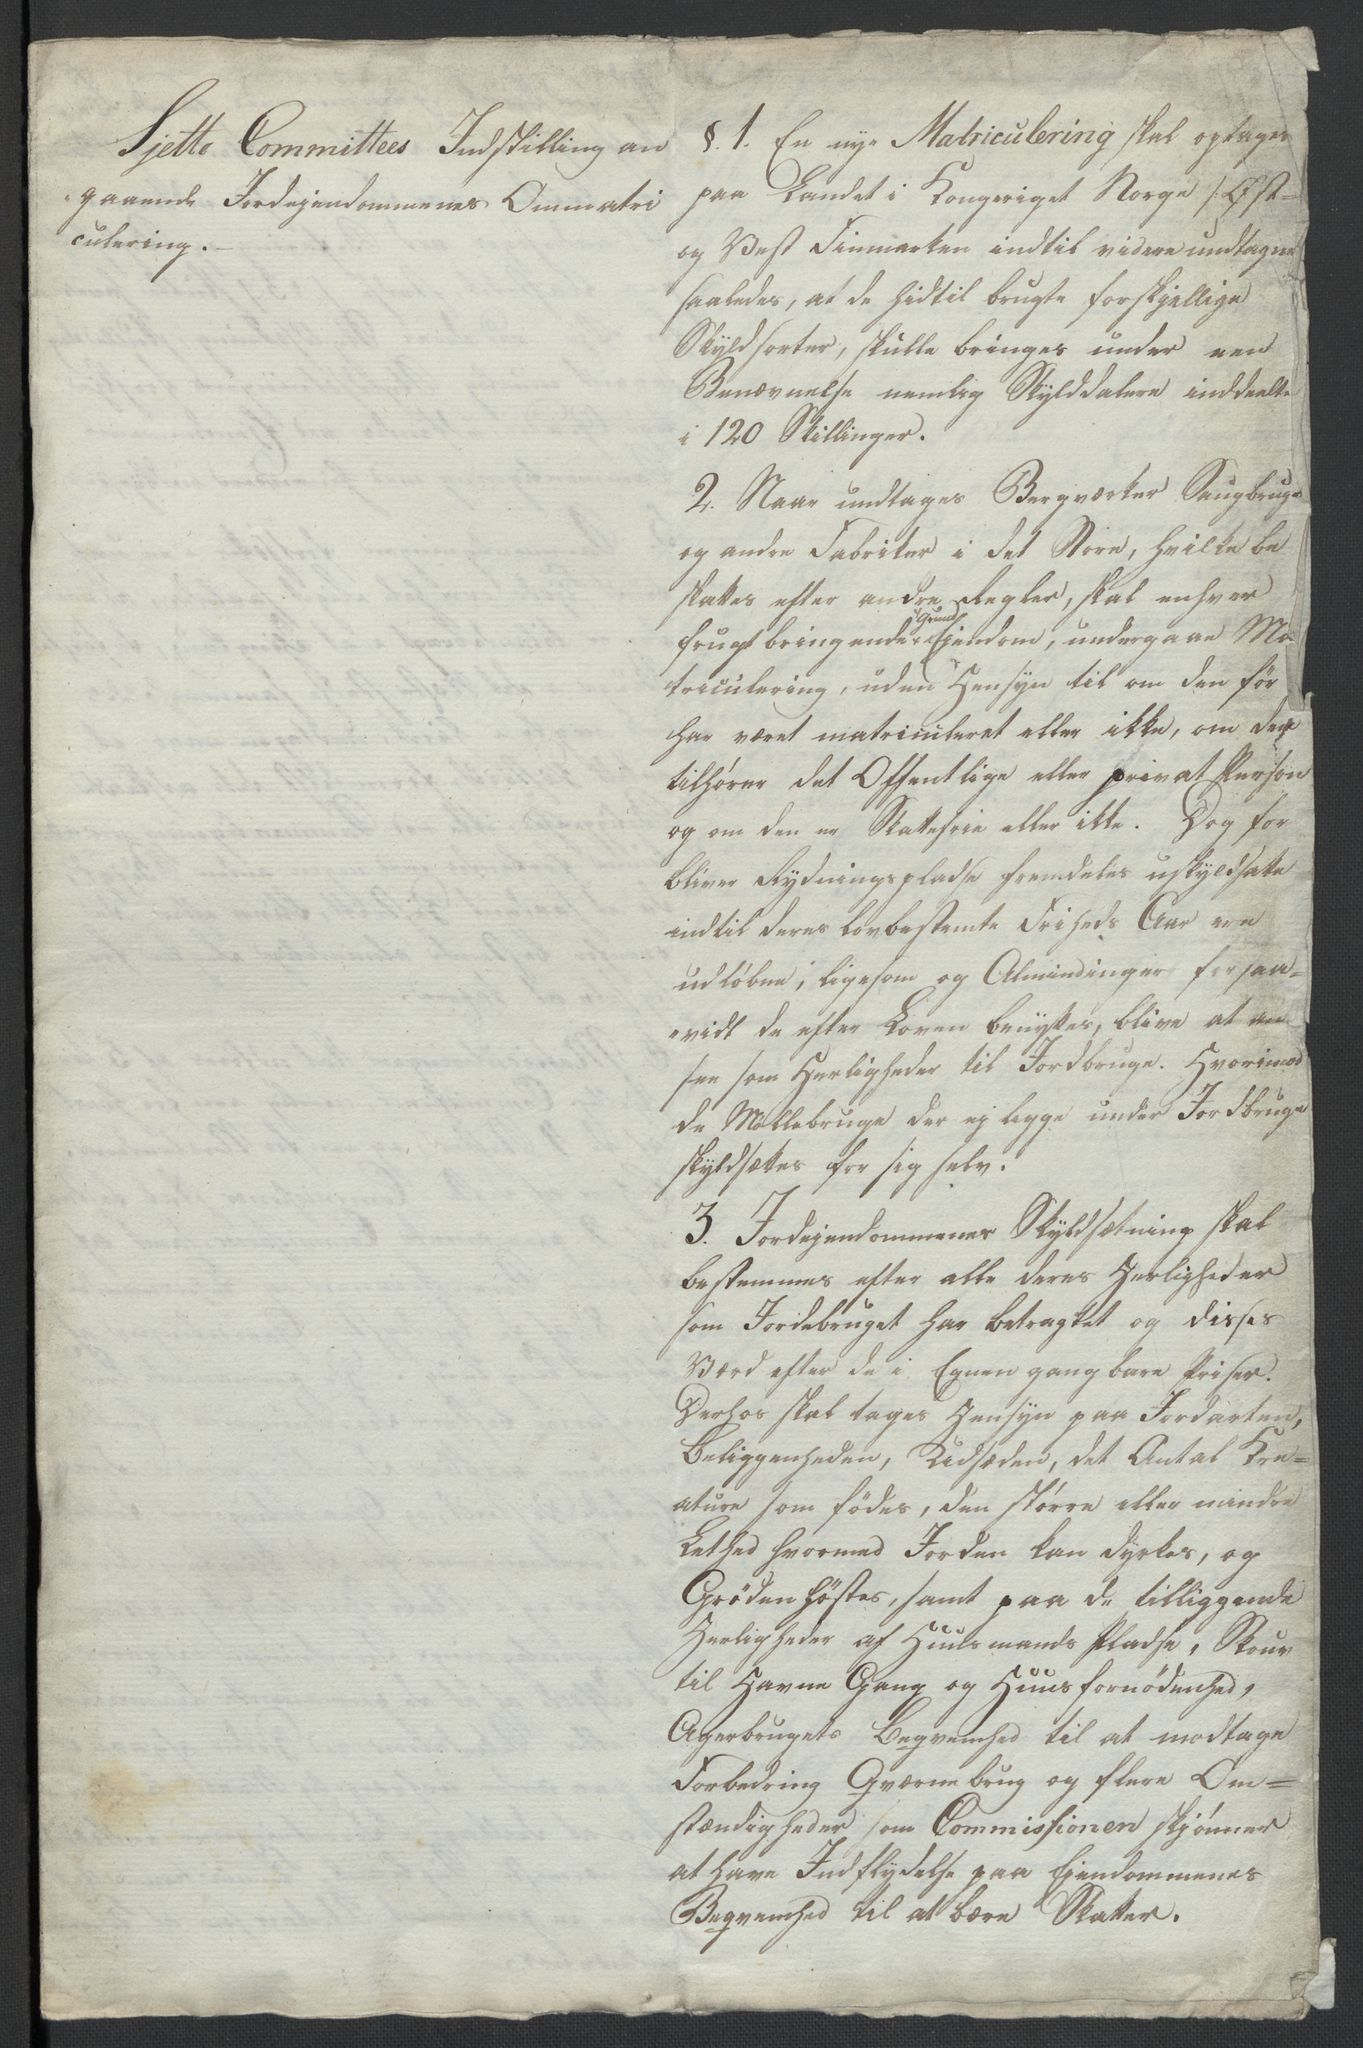 Sjette Committees Indstilling an
gaaende Jordejendommenes Ommatri
culering.
§. 1. En nye Matriculering skal optages
paa Landet i Kongeriget Norge /: Øst-
og Vest Finmarken indtil videre undtagne
saaledes, at de hidtil brugte forskjellige
Skyldsorter, skulle bringes under een
Benævnelse nemlig Skylddalere inddeelte
i 120 Skillinger.
2. Naar undtages Bergværker Saugbruge
og andre Fabriker i det Store, hvilke be
skattes efter andre Regler, skal enhver
frugtbringende Grund Ejendom, undergaae Ma
triculering, uden Hensyn til om den før
har været matriculeret eller ikke, om den
tilhører det Offentlige eller privat Person
og om den er Skattefrie eller ikke. Dog for
bliver Rydningspladse fremdeles uskyldsatte
indtil deres lovbestemte Friheds Aar ere
udløbne, ligesom og Almindinger forsaa-
vidt de efter Loven benyttes, blive at an
see som Herligheder til Jordbruge. Hvorimod
de Møllebruge der ej ligge under Jordbruge
skyldsættes for sig selv.
3. Jordejendommenes Skyldsætning skal
bestemmes efter alle deres Herligheder
som Jordebruget har betragtet og disses
Værd efter de i Egnen gangbare Priser.
Derhos skal tages Hensyn paa Jordarten,
Beliggenheden, Udsæden, det Antal Kre=
ature som fødes, den større eller mindre
Lethed hvormed Jorden kan dyrkes, og
Grøden høstes, samt paa de tilliggende
Herligheder af Huusmands Pladse, Skouv
til Havne Gang og Huusfornødenhed,
Agerbrugets Beqvemhed til at modtage
Forbedring Qværnebrug og flere Om=
stændigheder som Commissionen skjønner
at have Indflydelse paa Ejendommenes
Beqvemhed til at bære Skatter.